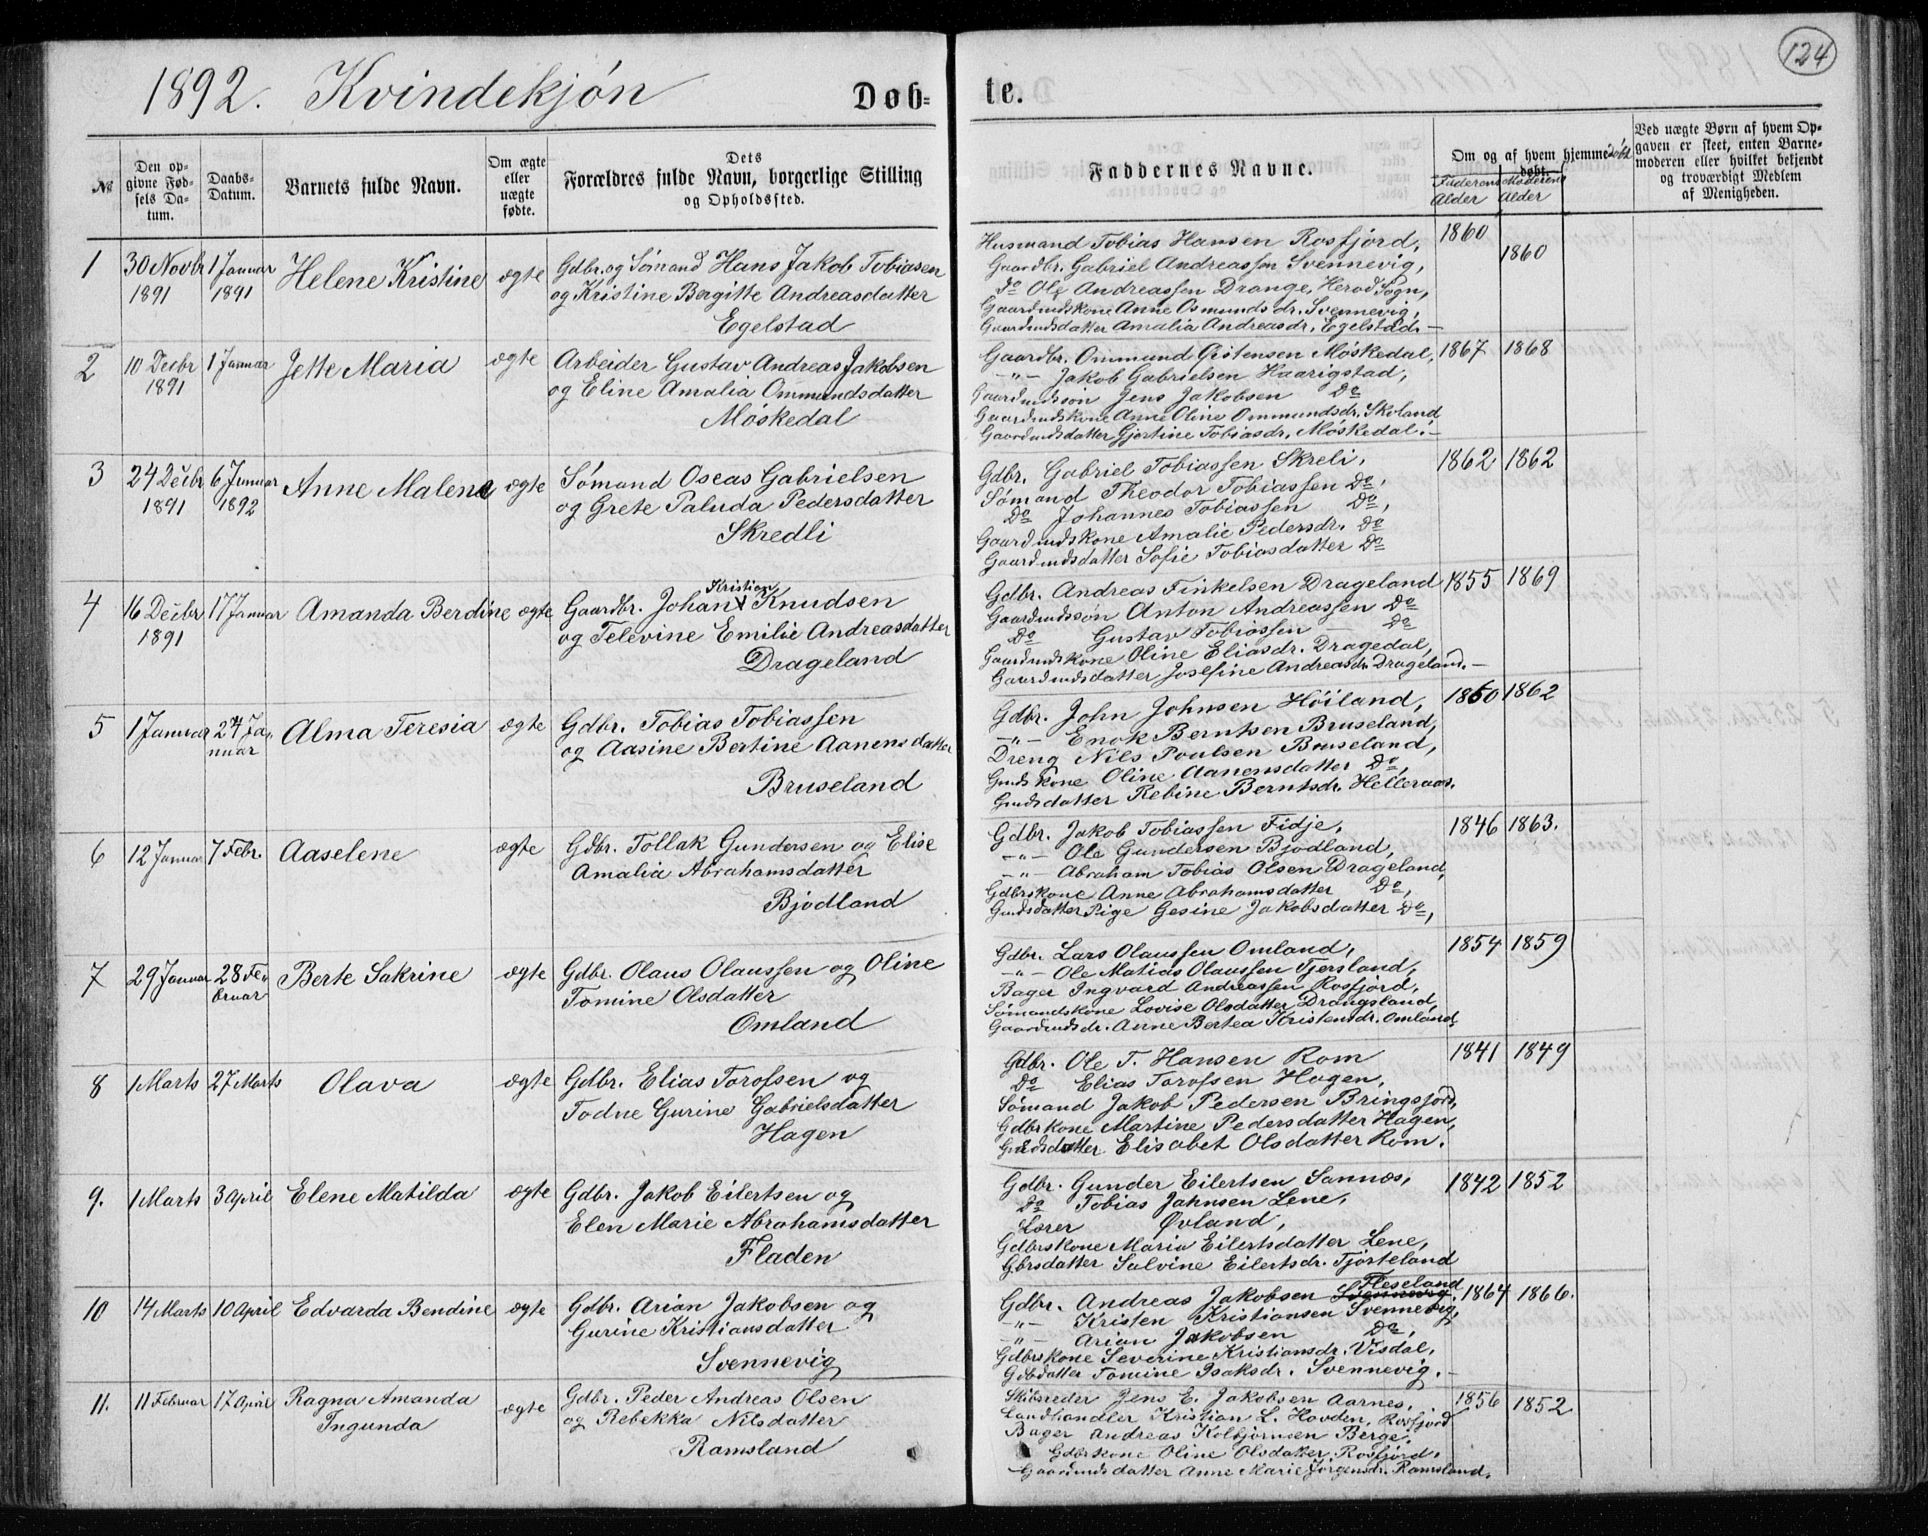 1892. Kvindekjøn
Døb=
te.
124
№
Den op=
givne Fød=
sels Da=
tum.
Daabs=
Datum.
Barnets fulde Navn.
Om ægte
eller
uægte
fødte.
Dets
Forældres fulde Navn, borgerlige Stilling
og Opholdssted.
Faddernes Navne.
Om og af hvem hjemme=
døbt.
Faderens
Alder
Moderens
Alder
Ved uægte Børn af hvem Op=
gaven er skeet, enten Barne=
moderen eller hvilket bekjendt
og troværdigt Medlem
af Menigheden.
1
30 Novbr
1891
1 Januar
1891
Helene Kristine
ægte
Gdbr. og Sømand Hans Jakob Tobiasen
og Kristine Bergitte Andreasdatter
Egelstad
Husmand Tobias Hansen Rosfjord,
Gaardbr. Gabriel Andreassen Svennevig,
Do Ole Andreassen Drange, Herod Sogn,
Gaardmdskone Anne Osmundsdr. Svennevig,
Gaardmdsdatter Amalia Andreasdr. Egelstad.
1860
1860
2
10 Decbr
1891
1 Januar
Jette Maria
ægte
Arbeider Gustav Andreas Jakobsen
og Eline Amalia Ommundsdatter
Møskedal
Gaardbr. Ommund Gistensen Møskedal,
-"- Jakob Gabrielsen Haarigstad,
Gaardmdssøn Jens Jakobsen Do
Gaardmdskone Anne Oline Ommundsdr. Skoland
Gaardmdsdatter Gjertine Tobiasdr. Møskedal.
1867
1868
3
24 Decbr
1891
6 Januar
1892
Anne Malena
ægte
Sømand Oseas Gabrielsen
og Grete Paluda Pedersdatter
Skredli
Gdbr. Gabriel Tobiassen Skreli,
Sømand Theodor Tobiassen Do,
Do Johannes Tobiassen Do,
Gaardmdskone Amalie Pedersdr. Do
Gaardmdsdatter Sofie Tobiasdatter Do
1862
1862
4
16 Decbr
1891
17 Januar
Amanda Berdine
ægte
Kristian
Gaardbr. Johan Knudsen
og Televine Emilie Andreasdatter
Drageland
Gdbr. Andreas Finkelsen Drageland
Gaardmdssøn Anton Andreassen Do
Do Gustav Tobiassen Do
Gaardmdskone Oline Eliasdr. Dragedal,
Gaardmdsdatter Josefine Andreasdr. Drageland.
1855
1869
5
1 Januar
24 Ja=
nuar
Alma Teresia
ægte
Gdbr. Tobias Tobiassen
og Aasine Bertine Aanensdatter
Bruseland
Gdbr. John Johnsen Høiland,
-"- Enok Berntsen Bruseland,
Dreng Nils Poulsen Bruseland,
Gmdskone Oline Aanensdatter Do,
Gmdsdatter Rebine Berntsdr. Helleraas.
1860
1862
6
12 Januar
7 Febr.
Aaselene
ægte
Gdbr. Tollak Gundersen og Elise
Amalia Abrahamsdatter
Bjodland
Gdbr. Jakob Tobiassen Fidje,
-"- Ole Gundersen Bjodland,
-"- Abraham Tobias Olsen Drageland,
Gdbrskone Anne Abrahamsdatter Do,
Gmdsdatter Pige Gesine Jakobsdatter Do,
1846
1863.
7
29 Januar
28 Fe=
bruar
Berte Sakrine
ægte
Gdbr. Olaus Olaussen og Oline
Tomine Olsdatter
Omland
Gdbr. Lars Olaussen Omland,
-"- Ole Matias Olaussen Tjersland,
Bager Ingvard Andreassen Rosfjord,
Sømandskone Lovise Olsdatter Drangsland,
Gaardmdsdr. Anne Bertea Kristensdr. Omland
1854
1859
8
1 Marts
27 Marts
Olava
ægte
Gdbr. Elias Torofsen og
Todne Gurine Gabrielsdatter
Hagen
Gdbr. Ole T. Hansen Rom
Do Elias Torofsen Hagen,
Sømand Jakob Pedersen Bringsjord,
Gdbrkone Martine Pedersdatter Hagen,
Gmdsdatter Elisabet Olsdatter Rom.
1841
1849
9.
1 Marts
3 April
Elene Matilda
ægte
Gdbr. Jakob Eilertsen og
Elen Marie Abrahamsdatter
Fladen
Gdbr. Gunder Eilertsen Sannæs,
Do Tobias Jahnsen Lene,
Lærer Øvland,
Gdbrskone Maria Eilertsdatter Lene,
Gbrsdatter Salvine Eilertsdr. Tjørteland
1842
1852
10
14 Marts
10 April
Edvarda Bendine
ægte
Gdbr. Arian Jakobsen og
Gurine Kristiansdatter
Svennevig
Fleseland
Gdbr. Andreas Jakobsen Svennevig,
-"- Kristen Kristiansen Svennevig,
-"- Arian Jakobsen Do,
Gdbrskone Severine Kristiansdr. Visdal,
Gdbdatter Tomine Isaksdr. Svennevig.
1864
1866.
11.
11 Februar
17 April
Ragna Amanda
Ingunda
ægte
Gdbr. Peder Andreas Olsen
og Rebekka Nilsdatter
Ramsland
Skibsreder Jens E. Jakobsen Aarnes,
Landhandler Kristian L. Hovden, Rosfjord
Bager Andreas Kolbjørnsen Berge,
Gdbrskone Oline Olsdatter Rosfjord,
Gaardmdsdatter Anne Marie Jørgensdr. Ramsland.
1856
1852